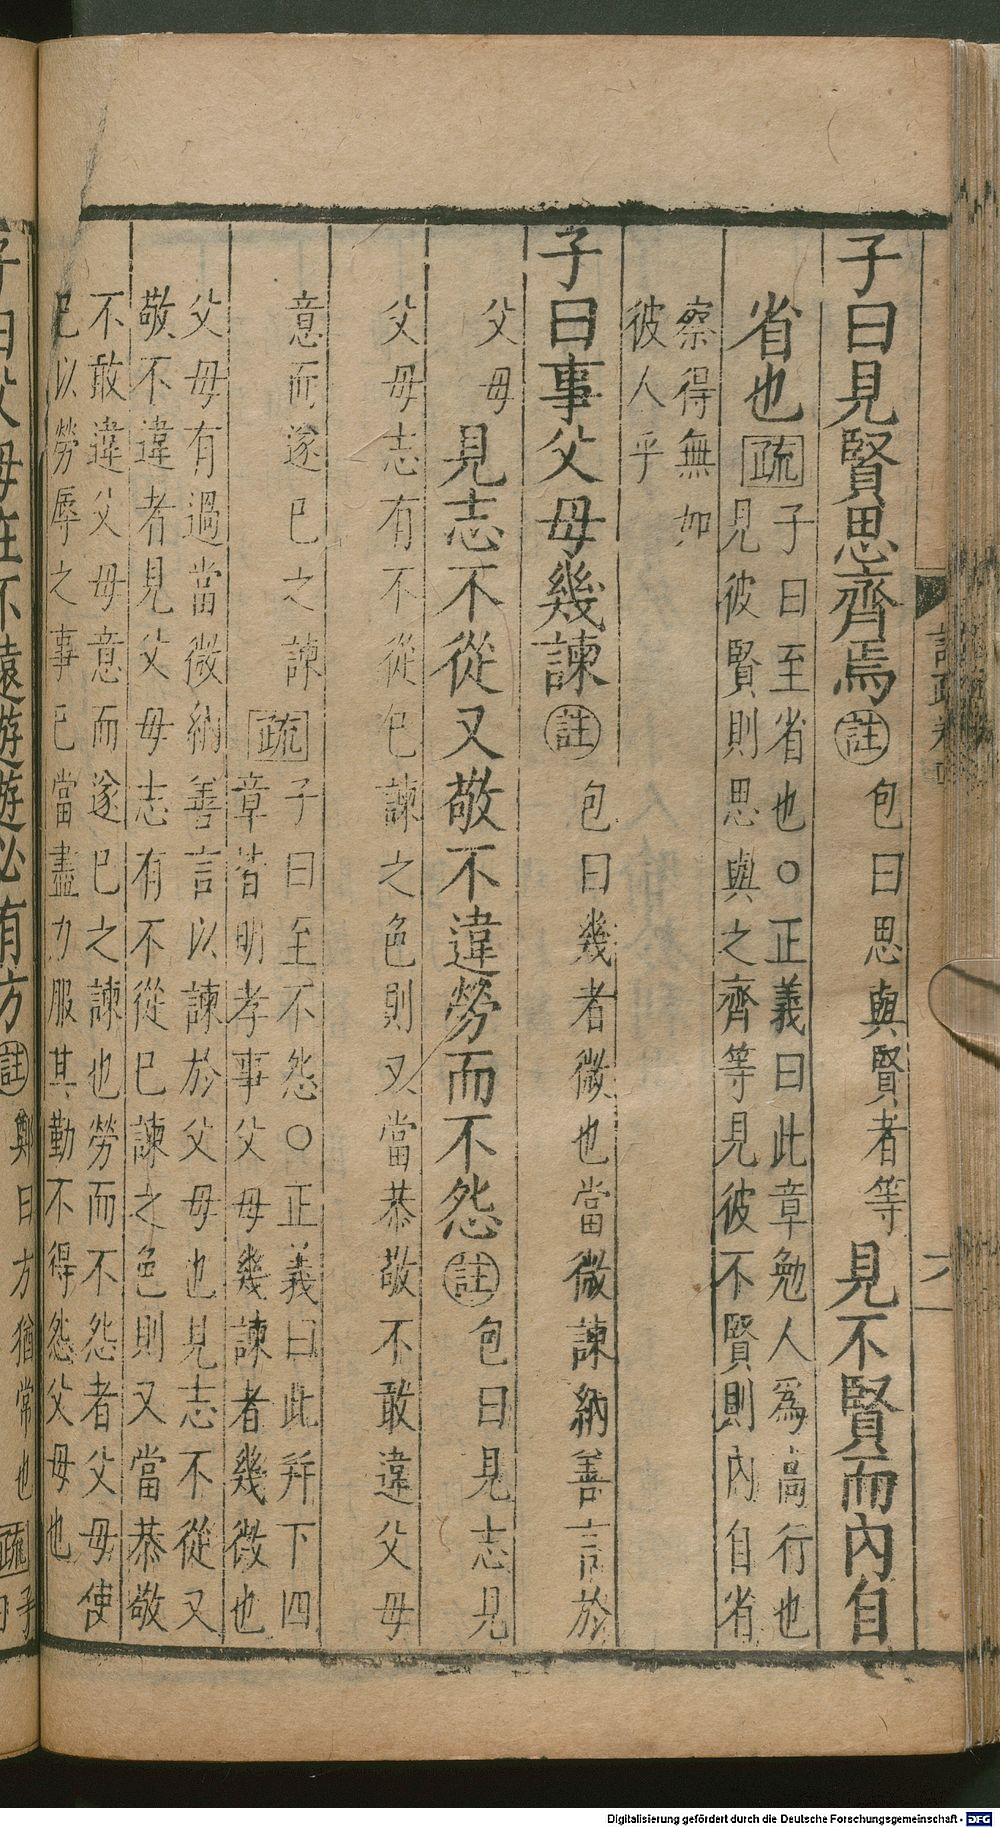 子曰見賢思齊焉註包曰思與賢者等見不賢而內自
省也疏子曰至省也○正義曰此章勉人爲高行也
見彼賢則思與之齊等見彼不賢則內自省
察得無如
彼人乎
子曰事父母幾諫註包曰幾者微也當微諫納善言於
父母見志不從又敬不違勞而不怨註包曰見志見
父母志有不從已諫之色則又當恭敬不敢違父母
意而遂已之諫疏子曰至不怨○正義曰此并下四
章皆明孝事父母幾諫者幾微也
父母有過當微納善言以諫於父母也見志不從又
敬不違者見父母志有不從已諫之色則又當恭敬
不敢違父母意而遂已之諫也勞而不怨者父母使
已以勞辱之事已當盡力服其勤不得怨父母也
子曰父母在不遠遊遊必有方註鄭曰方猶常也疏
Digitalisierung gefördert durch die Deutsche Forschungsgemeinschaft - DFG